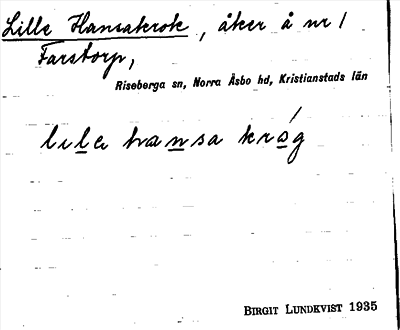 Lille Hansakrok, åker å nr 1
Farstorp,
Riseberga sn, Norra Åsbo hd, Kristianstads län
lile hansa kråg
BIRGIT LUNDKVIST 1935